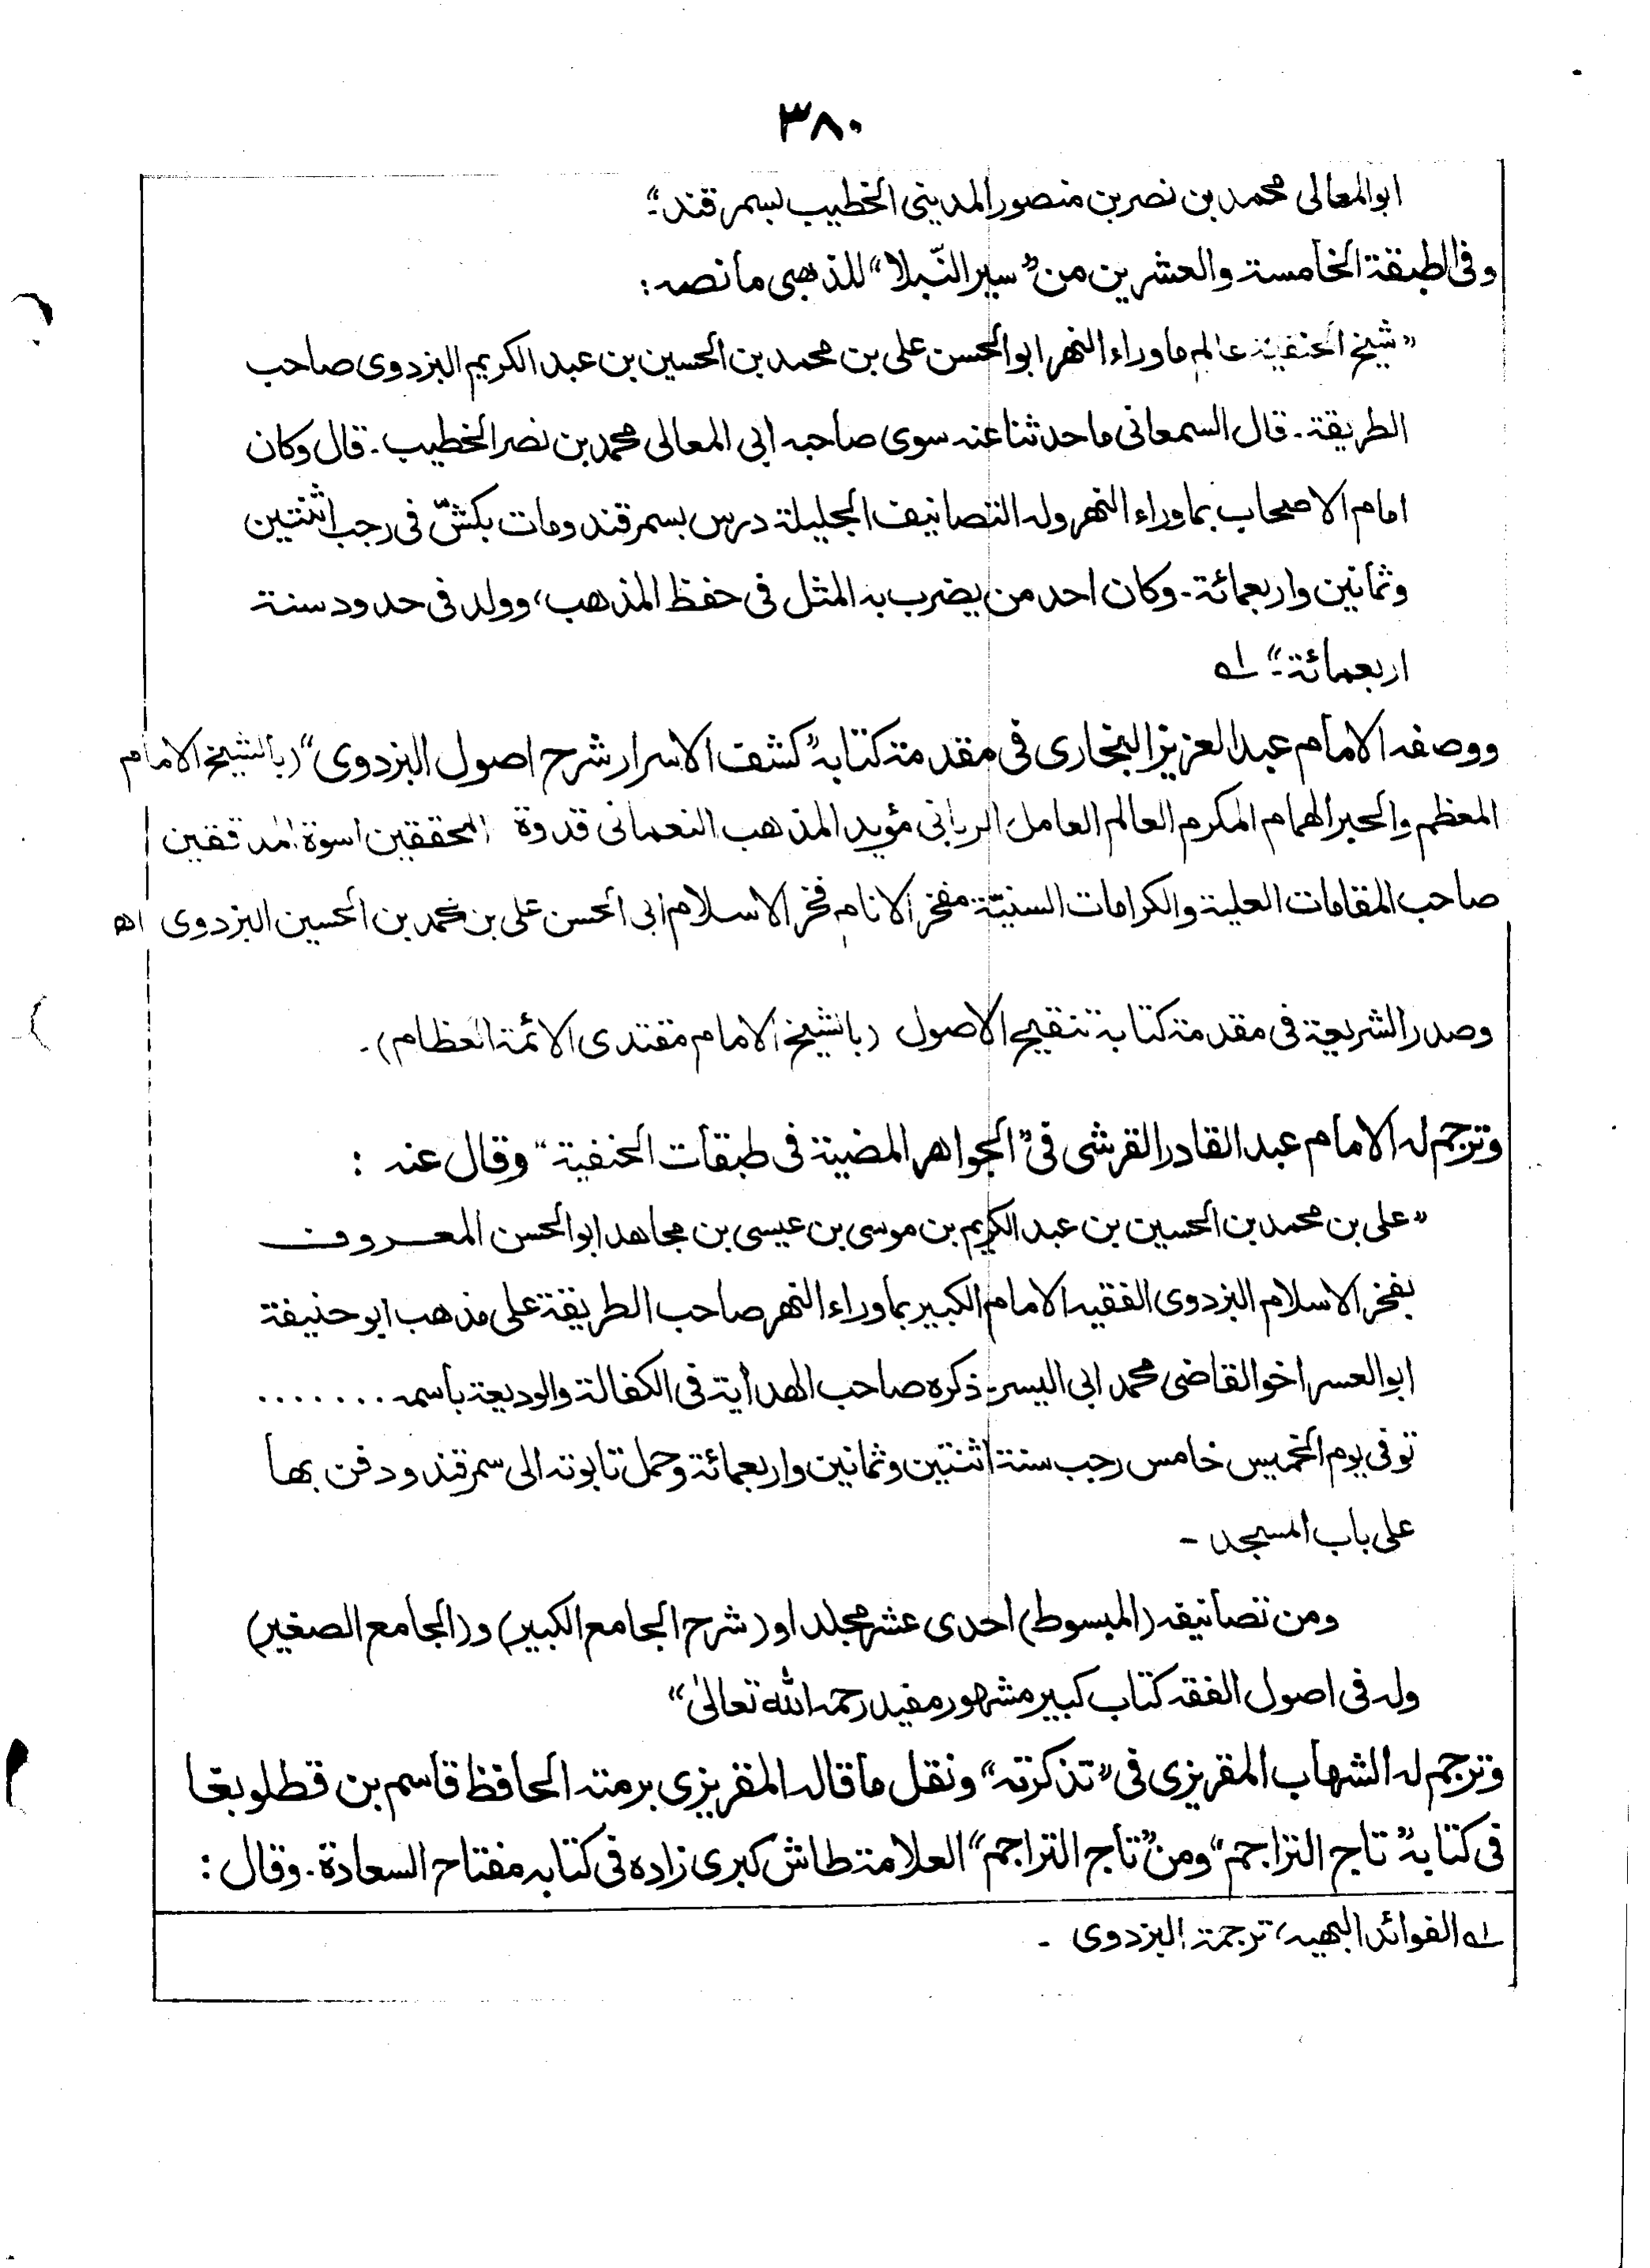 ٣٨٠
ابوالمعالى محمد بن نصر بن منصور المدينى الخطيب بسمرقند"۔
وفى الطبقة الخامسة والعشرين من "سير النّبلا" للذهبى ما نصه :
"شيخ الحنفية عالم ما وراء النهر ابوالحسن على بن محمد بن الحسين بن عبد الكريم البزدوى صاحب
الطريقة۔ قال السمعانى ما حدثنا عنه سوى صاحبه ابى المعالى محمد بن نصر الخطيب۔ قال وكان
امام الاصحاب بما وراء النهر وله التصانيف الجليلة درس بسمرقند ومات بكسّ فى رجب اثنتين
وثمانين واربعمائة۔ وكان احد من يضرب به المثل فى حفظ المذهب، وولد فى حدود سنة
اربعمائة"۔ ١ه
ووصفه الامام عبد العزيز البخارى فى مقدمة كتابه "كشف الاسرار شرح اصول البزدوى" (بالشيخ الامام
المعظم والحبر الهمام المكرم العالم العامل الربانى مؤيد المذهب النعمانى قدوة المحققين اسوة المدققين
صاحب المقامات العلية والكرامات السنيّة مفخر الانام فخر الاسلام ابى الحسن على بن محمد بن الحسين البزدوى اھ
وصدر الشريعة فى مقدمة كتابة تنقيح الاصول (بالشيخ الامام مقتدى الائمة العظام)۔
وترجم له الامام عبد القادر القرشى فى "الجواهر المضية فى طبقات الحنفية" وقال عنه :
"على بن محمد بن الحسين بن عبد الكريم بن موسى بن عيسى بن مجاهد ابوالحسن المعروف
بفخر الاسلام البزدوى الفقيه الامام الكبير بما وراء النهر صاحب الطريقة على مذهب ابو حنيفة
ابوالعسر اخو القاضى محمد ابى اليسر۔ ذكره صاحب الهداية فى الكفالة والوديعة باسمه . . . . . . .
توفى يوم الخميس خامس رجب سنة اثنتين وثمانين واربعمائة وحمل تابوته الى سمرقند ودفن بها
على باب المسجد ۔
ومن تصانيفه (المبسوط) احدى عشر مجلدا و (شرح الجامع الكبير) و (الجامع الصغير)
وله فى اصول الفقه كتاب كبير مشهور مفيد رحمه الله تعالىٰ"
وترجم له الشهاب المقريزى فى "تذكرته" ونقل ما قاله المقريزى برمته الحافظ قاسم بن قطلوبغا
فى كتابه "تاج التراجم" ومن "تاج التراجم" العلامة طاش كبرى زاده فى كتابه مفتاح السعادة۔ وقال :
١ه الفوائد البهيه، ترجمة البزدوى ۔